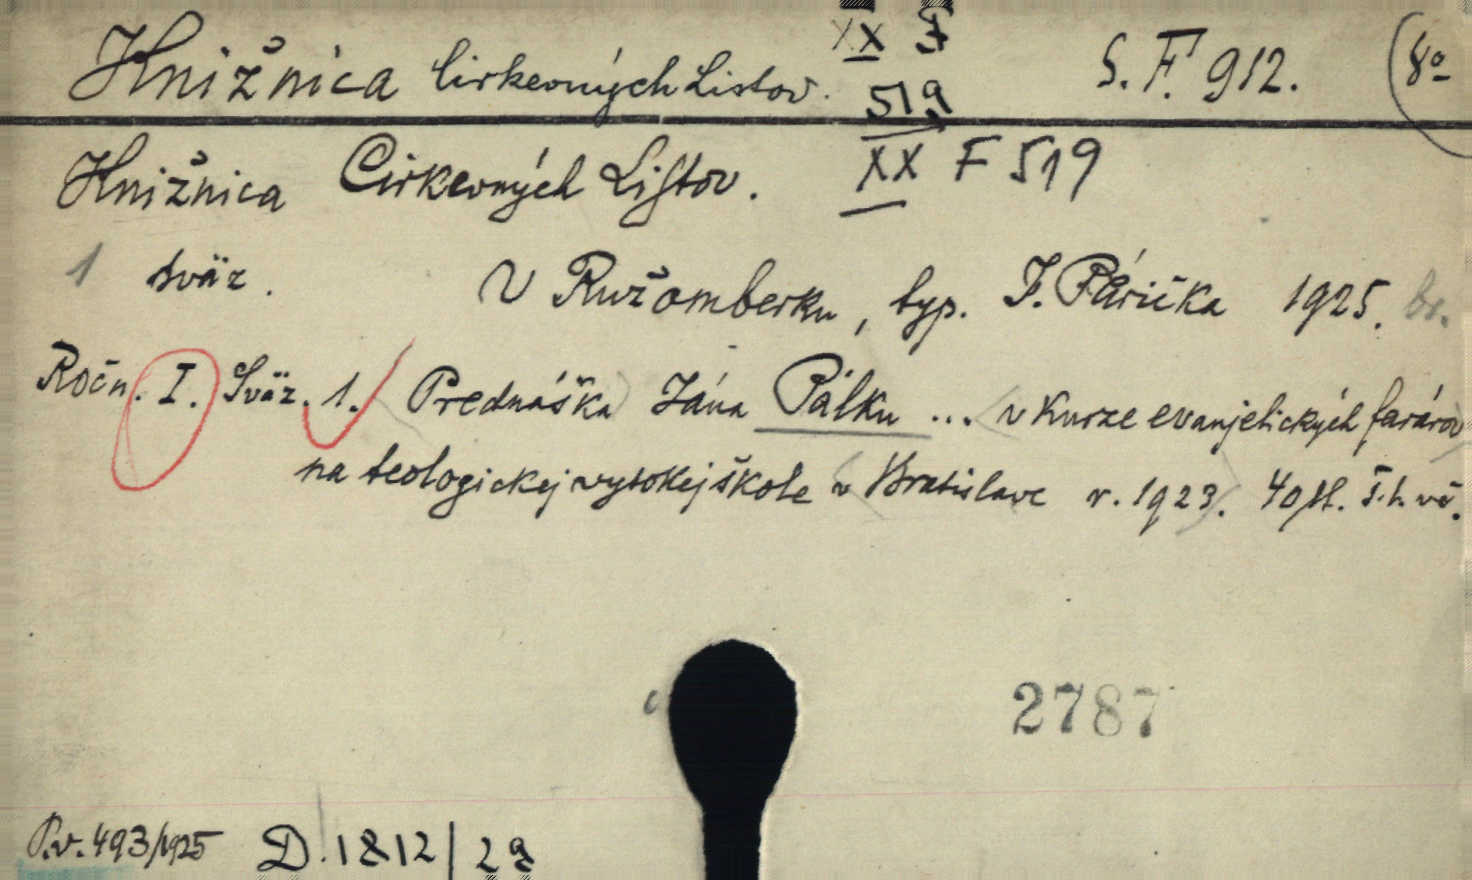 Knižnica Cirkevných Listov. XX F 519 S. F. 912. 8º
Knižnica Cirkevných Listov. XX F 519
1 sväz. V Ružomberku, typ. J. Párička 1925. br.
Ročn. I. Sväz. 1. Prednáška Jána Pálku ... v kurze evanjelických farárov
na teologickej vysokej škole v Bratislave r. 1923. 40 st.
2787
P.v. 493/1925 D. 1812/29